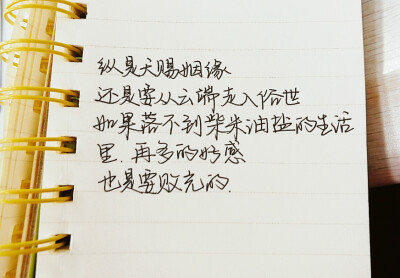 纵是天赐姻缘
还是要从云端走入俗世
如果落不到柴米油盐的生活
里.再多的好感
也是要败光的.